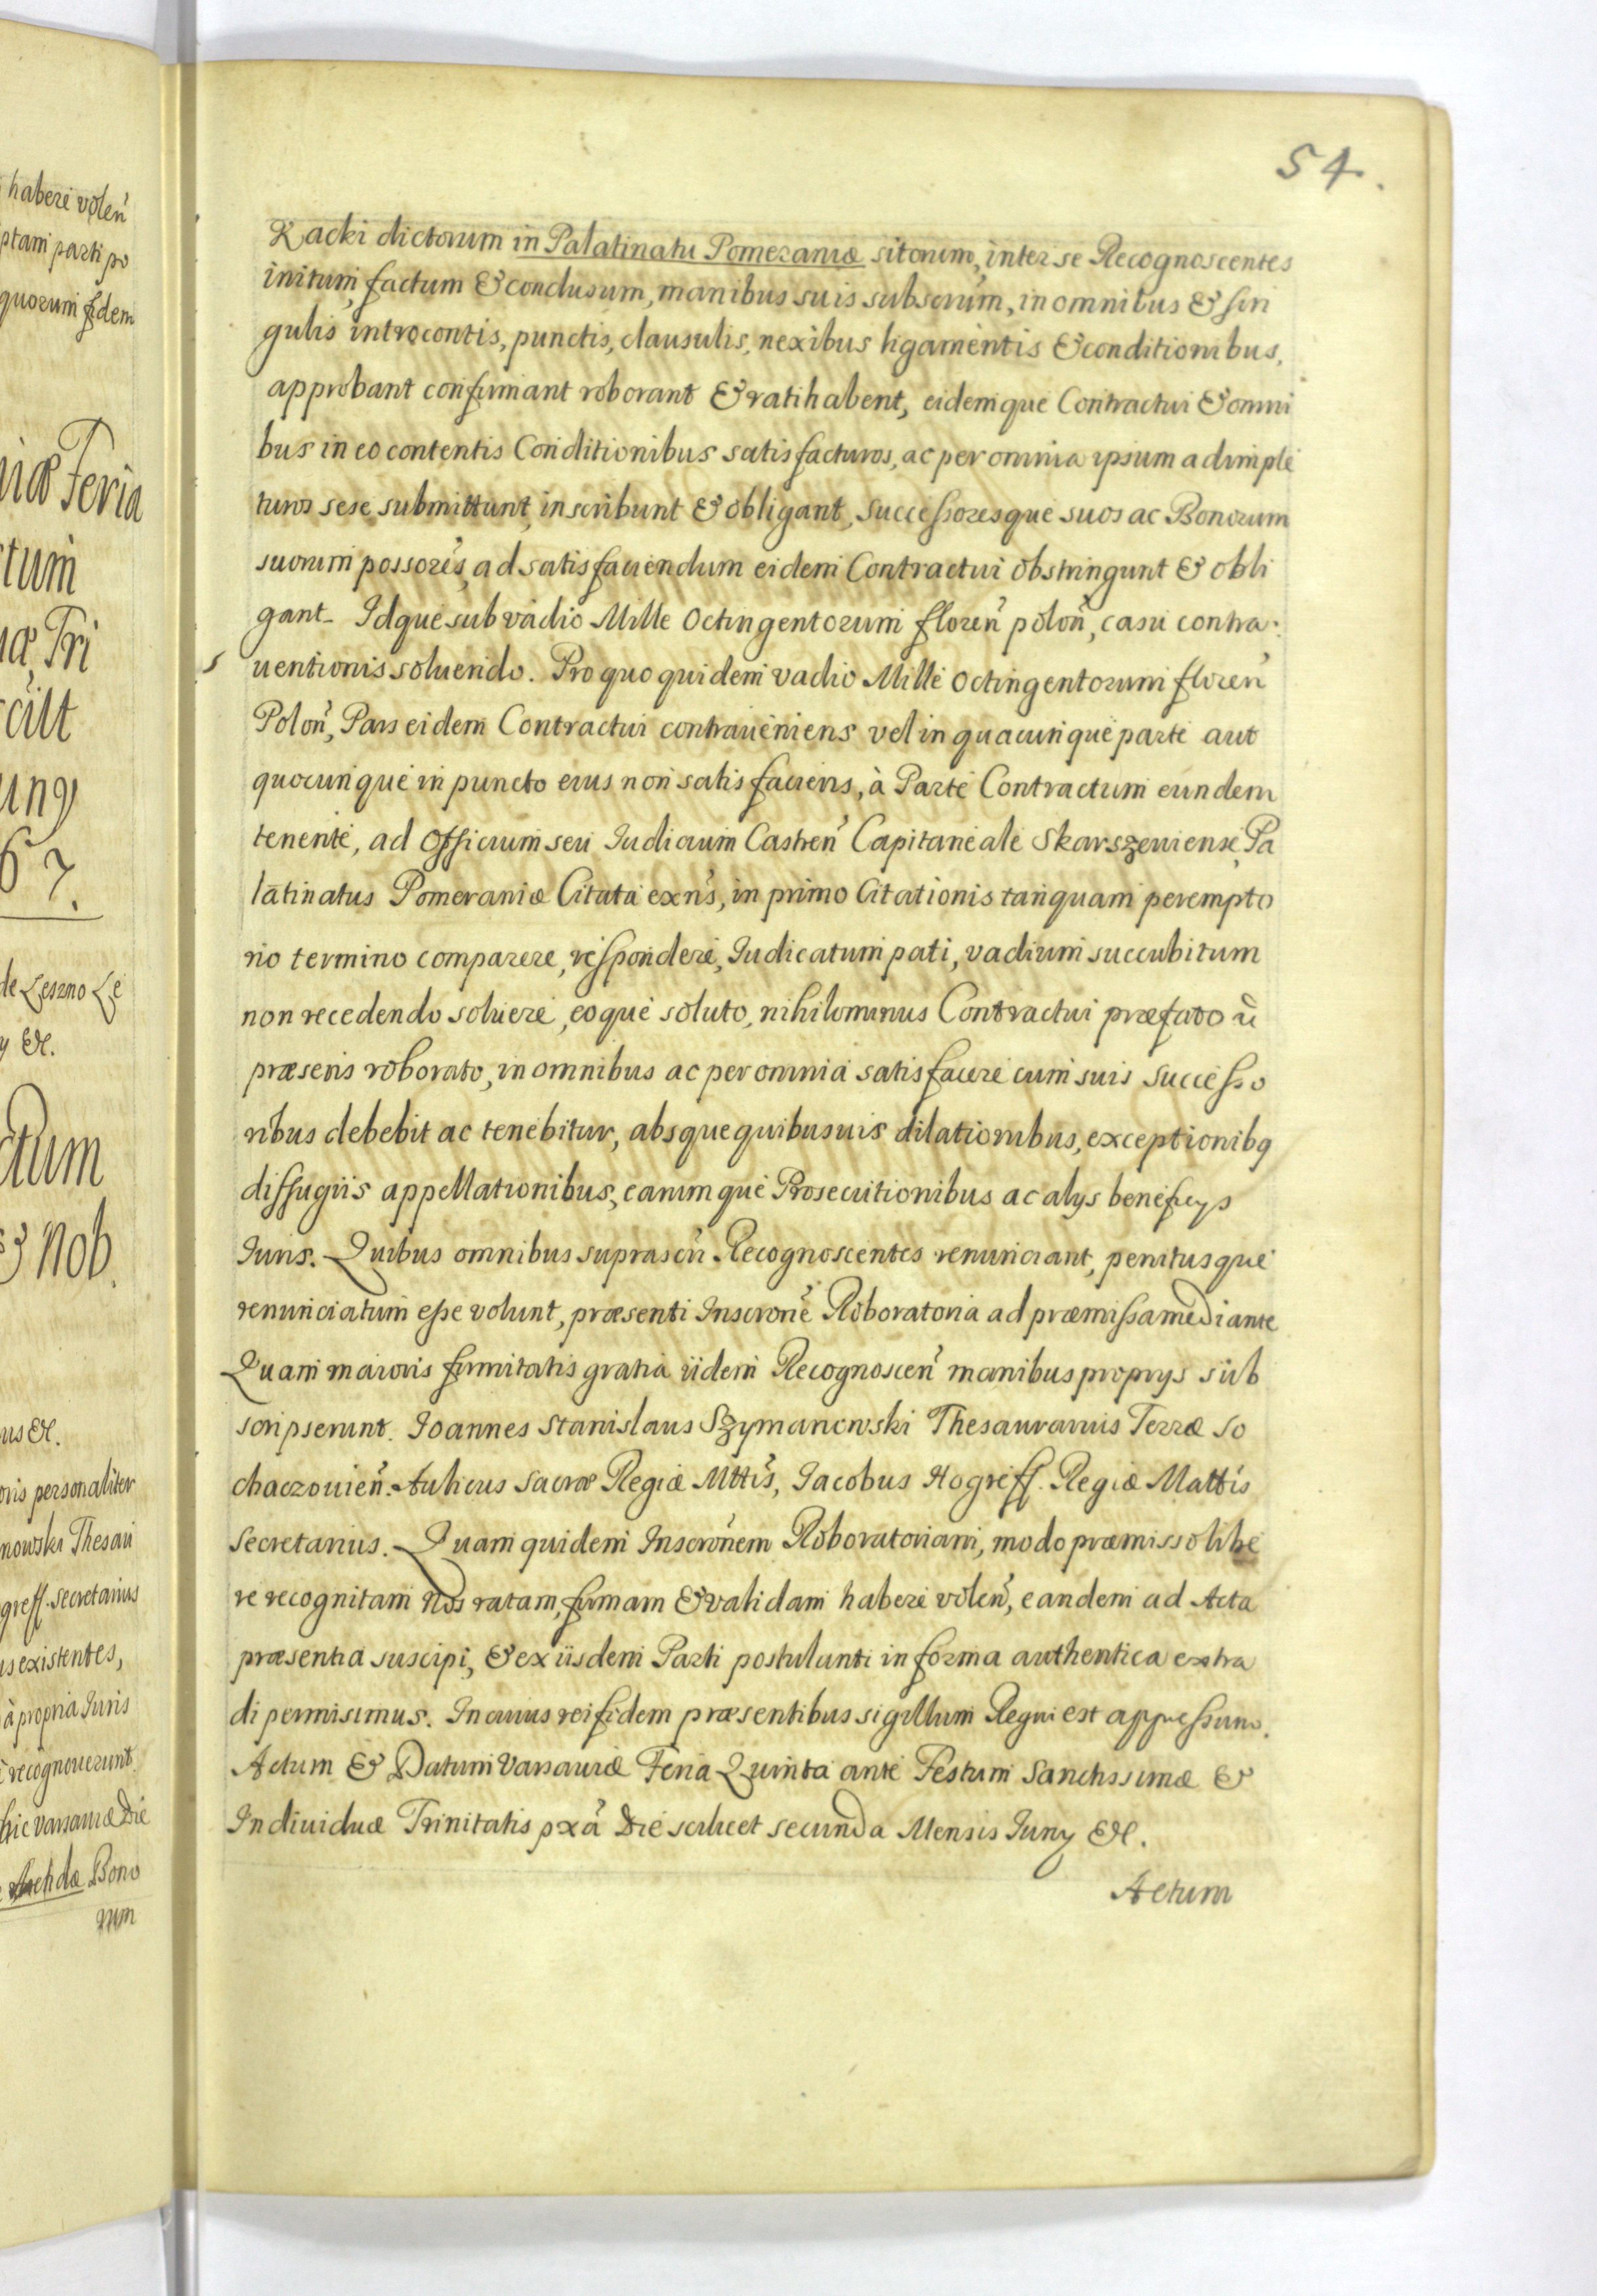 54.
Racki dictorum in Palatinatu Pomeraniæ sitorum, inter se Recognoscentes
initum, factum & conclusum, manibus suis subscrũm, in omnibus & sin
gulis introcontis, punctis, clausulis, nexibus ligamentis & conditionibus,
approbant confirmant roborant & ratihabent, eidemque Contractui & omni
bus in eo contentis Conditionibus satisfacturos, ac per omnia ipsum adimple
turos sese submittunt, inscribunt & obligant, Successoresque suos ac Bonorum
suorum possores̃, ad satisfaciendum eidem Contractui obstringunt & obli
gant. Idque sub vadio Mille Octingentorum floreñ poloñ, casu contra
uentionis soluendo. Pro quo quidem vadio Mille Octingentorum floreñ
Poloñ, Pars eidem Contractui contraueniens vel in quacunque parte aut
quocunque in puncto eius non satisfaciens, à Parte Contractum eundem
tenente, ad Officium seu Iudicium Castreñ Capitaneale Skarszeuiense Pa
latinatus Pomeraniæ Citata exñs, in primo Citationis tanquam perempto
rio termino comparere, respondere, Iudicatum pati, vadium succubitum
non recedendo soluere, eoque soluto, nihilominus Contractui præfato ũ
præsens roborato, in omnibus ac per omnia satisfacere cum suis Successo
ribus debebit ac tenebitur, absque quibusuis dilationibus, exceptionibq
diffugiis appellationibus, earumque Prosecutionibus ac alys beneficys
Iuris. Quibus omnibus suprascr̃ Recognoscentes renunciant, penitusque
renunciatum esse volunt, præsenti Inscronẽ̴ Roboratoria ad præmissa mediante
Quam maioris firmitatis gratia iidem Recognosceñ manibus proprys sub
scripserunt. Ioannes Stanislaus Szymanowski Thesaurarius Terræ So
chaczouieñ. Aulicus Sacræ Regiæ Mttis̃, Iacobus Hogreff. Regiæ Mattis
Secretarius. Quam quidem Inscrõnem Roboratoriam, modo præmisso libe
re recognitam Nos ratam, firmam & validam habere voleñ, eandem ad Acta
præsentia suscipi, & ex iisdem Parti postulanti in forma authentica extra
di permisimus. In cuius rei fidem præsentibus sigillum Regni est appressum.
Actum & Datum Varsauiæ Feria Quinta ante Festum Sanctissimæ &
Indiuiduæ Trinitatis pxã Die scilicet secunda Mensis Iuny &c.
Actum
haberi voleñ
ptam parti po
quorum fidem
iæ Feria
tum
Tri
67.
de Leszno Le
y &c.
ctum
& Nob.
us &c.
oris personaliter
nowski Thesau
greff. secretarius
us existentes,
à propria Iuris
recognouerunt
hic varsauiæ Die
Bono
rum